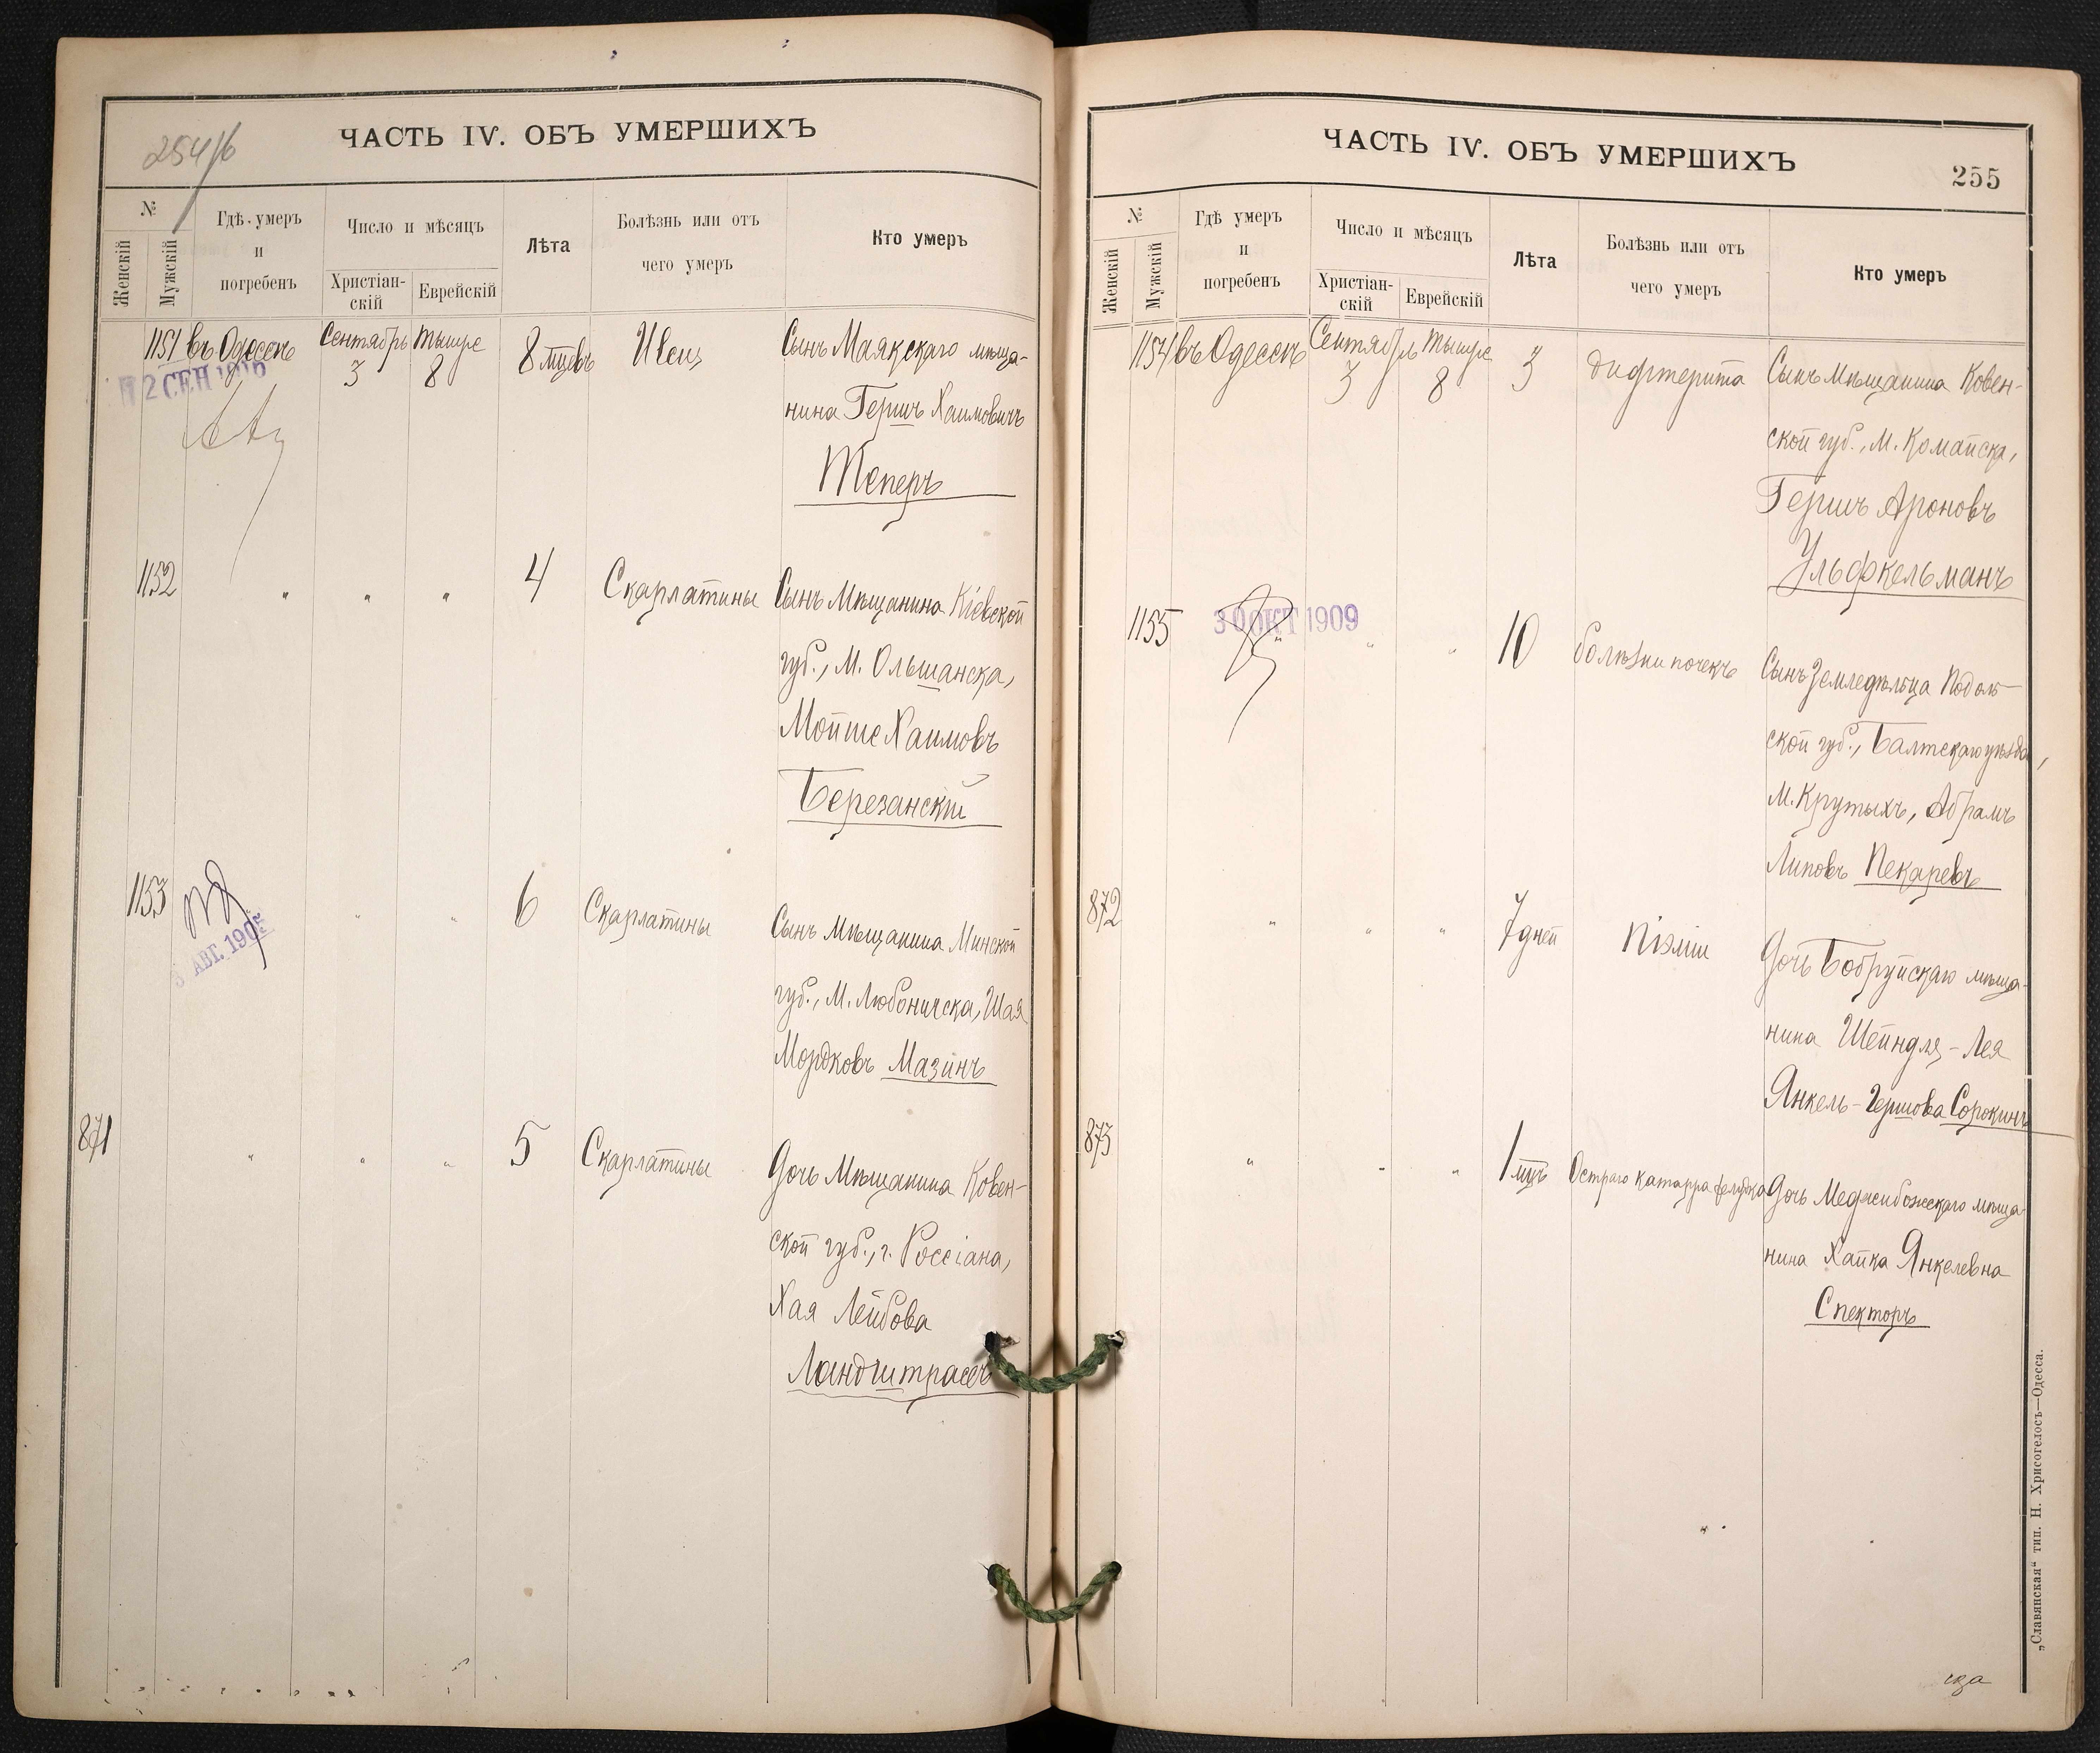 254/б
ЧАСТЬ IV. ОБЪ УМЕРШИХЪ
№
Женскій
Мужскій
Гдѣ умеръ
и
погребенъ
Число и мѣсяцъ
Христіан-
скій
Еврейскій
Лѣта
Болѣзнь или отъ
чего умеръ
Кто умеръ
1151 въ Одессѣ Сентябрь 3 Тышре 8 8 мцевъ
Сынъ Маякскаго мѣща-
нина Гершъ Хаимовичъ
Теперъ
2 СЕН 1916
1152 " " " 4 Скарлатины Сынъ Мѣщанина Кіевской
губ., М. Ольшанска,
Мойше Хаимовъ
Березанскій
1153 " " 6 Скарлатины Сынъ Мѣщанина Минской
АВГ. 190
губ., М. Любоничска, Шая
Мордковъ Мазинъ
871 " " " 5 Скарлатины Дочь Мѣщанина Ковен-
ской губ., г. Россіана,
Хая Лейбова
Ландштрасъ
ЧАСТЬ IV. ОБЪ УМЕРШИХЪ
255
№
Женскій
Мужскій
Гдѣ умеръ
и
погребенъ
Число и мѣсяцъ
Христіан-
скій
Еврейскій
Лѣта
Болѣзнь или отъ
чего умеръ
Кто умеръ
1154 въ Одессѣ Сентябрь 3 Тышре 8 3 дифтерита Сынъ Мѣщанина Ковен-
ской губ., М. Комайска,
Гершъ Ароновъ
Ульфкельманъ
1155 " " " 10 болѣзни почекъ Сынъ Земледѣльца Подоль-
30 ОКТ 1909
ской губ., Балтскаго уѣзда,
М. Крутыхъ, Абрамъ
Липовъ Пекаревъ
872 " " " 7 дней Піэміи Дочь Бобруйскаго мѣща-
нина Шейндля-Лея
Янкель-Гершова Сорокинъ
873 " " " 1 мцъ Остраго катарра желудка Дочь Меджибожскаго мѣща-
нина Хайка Янкелевна
Спекторъ
„Славянская“ тип. Н. Хрисогелосъ—Одесса.